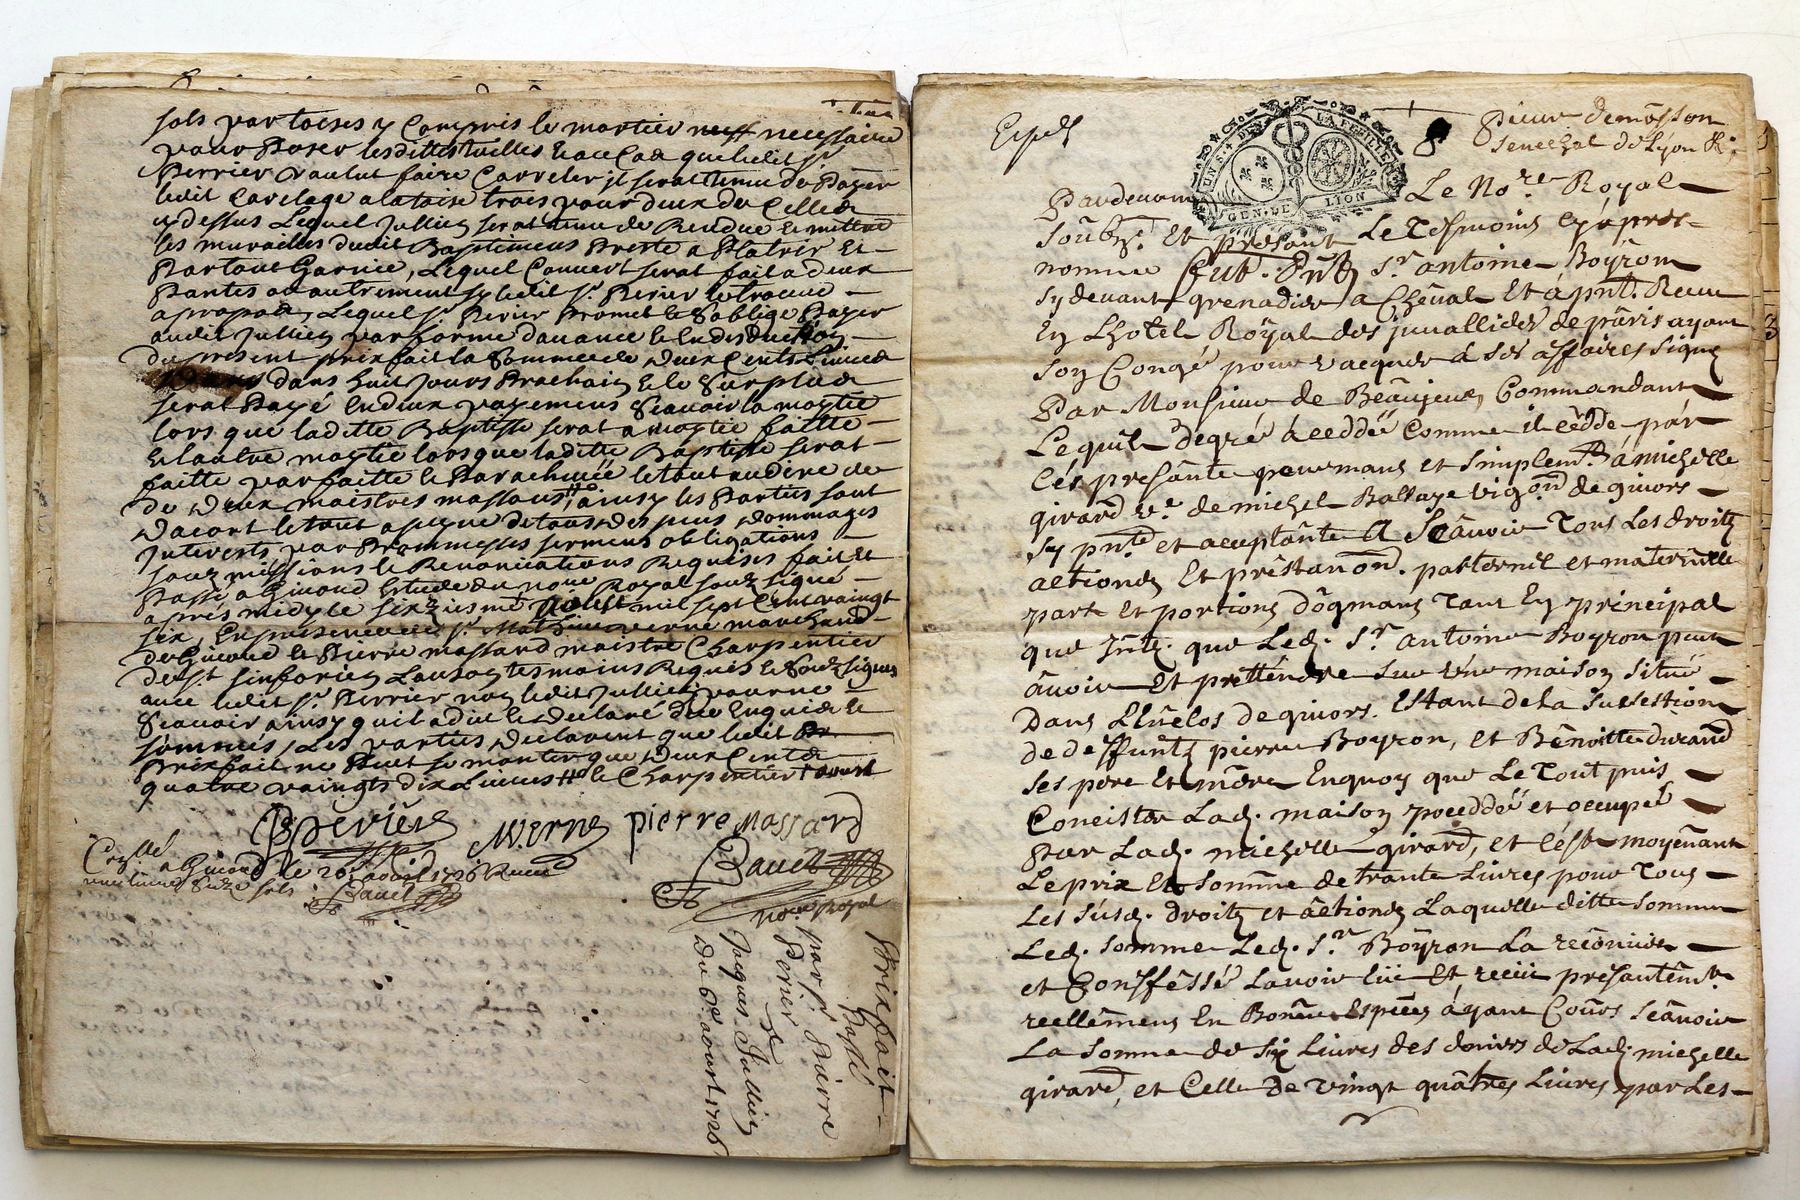 sols par toises y Compris le mortier necessaire
pour Poser lesdittes tuilles Et au Cas que ledit Sr.
Perrier voulut faire Carreler il serat tenu de Payer
ledit Carelage a la toise trois pour deux de Celle
cy dessus Lequel Jullien serat tenu de Rendre Et mettre
les murailles dudit Baptimens Preste a Platrir Et
Partout Garnie, Lequel Couvert serat fait a deux
Pantes ou autrement sy ledit Sr. Perier le trouve
a propos, Lequel Sr. Perier Promet Et Soblige Payer
audit Jullien par forme davance Et En deduction
du present prixfait la Somme de deux Cents Livres
dans huit Jours Prochain Et le Surplus
serat Payé En deux payemens Scavoir la moytie
lors que laditte Baptisse serat a moytie faitte
Et lautre moytie lors que laditte Baptisse serat
faitte parfaitte Et Parachevée le tout au dire de
de deux maistres massons, ainsy les Parties sont
dacort le tout a peyne de tous despens dommages
Interests par Prommesses sermens obligations
souzmissions Et Renonciations Requises fait Et
Passé a Givord Estude du nore Royal souzsigné
apres midy le sixziesme aoust mil sept Cent vaingt
six, En presence de Sr. Mathieu verne marchand
de Givord Et Pierre massard maistre Charpentier
de St. sinforien Lauzon tesmoins Requis Et Souzsignes
avec ledit Sr. Perrier non ledit Jullien pour ne
Scavoir ainsy qu il a dit Et declaré de ce Enquis Et
sommés, Les parties declarent que ledit
Prixfait ne Peut se monter que deux Cents
quatre vaingts dix Livres Et le Charpentier
BPeriere M. Verne pierre Massard
Bauet
nore royal
Conllé a Givord le 26e aoud 1726 Receu
seize sols Bauet
Prixfait
Passé
par Sr. Pierre
Perier
a
Jacques Jullien
Du 6e aoust 1726
Expedt
UN S. 4 DEN. LA FEUILLE
GEN. DE LION
senechal de Lyon
Pardevant Le Nore Royal
soubzné. Et presant Le Tesmoins cy apres
nomme fut. pñt Sr. antoine Boyron
sy devant grenadier a Cheval Et a pnt. Receu
En Lhotel Royal des jnvallides de paris ayant
son Congé pour vacquer a ses affaires signé
Par Monsieur de Beaujeux, Commandant
Lequil degré a ceddé comme il cedde par
Cés presante purmans et simplemt. a michelle
girard ve. de michel Ballaze vigon de givors
sy pnte et aceptante A Scavoir Tous Les droits
actiones Et pretanon. patternel et maternelle
part et portions dogmans Tant En principal
que Jntz. que Led. Sr. antoine Boyron peut
avoir Et prettendre sur Une maison situé
Dans Lluclos de givors. Estant de la susestion
de deffuntz pierre Boyron, et Benoitte durand
ses pere Et mere Enquoy que Le Tout puis
Coneister Lad. maison poceddée et occupée
Par Lad. michelle girard, et c'est moyenant
Le prix Et Somme de trante Livres pour Tous
Les susd. droits et actiones Laquelle ditte somme
Led. somme Led. Sr. Boyron La reconeu
et Confféssé Lavoir eüe Et receüe presantemt.
reellemens En Bonne Especes ayant Cours Scavoir
La somme de six Livres des deniers de Lad. michelle
girard, et Celle de vingt quatres Livres par Les